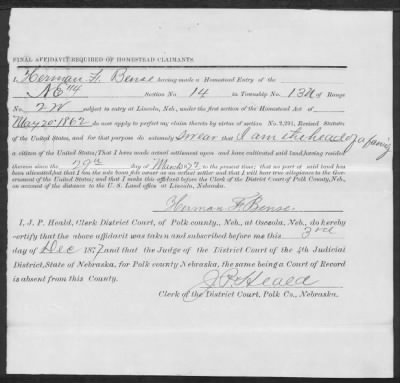 FINAL AFFIDAVIT REQUIRED OF HOMESTEAD CLAIMANTS.
I, Herman F. Bense having made a Homestead Entry of the
NE 1/4 Section No. 14 in Township No. 13N of Range
No. 2W subject to entry at Lincoln, Neb., under the first section of the Homestead Act of
May 20 1862 do now apply to perfect my claim thereto by virtue of section No. 2,291, Revised Statutes
of the United States, and for that purpose do solemnly Swear that I am the head of a family
a citizen of the United States; That I have made actual settlement upon and have cultivated said land, having resided
thereon since the 29th day of March 1872 to the present time; that no part of said land has
been alienated, but that I am the sole bona fide owner as an actual settler and that I will bear true allegiance to the Gov-
ernment of the United States; and that I make this affidavit before the Clerk of the District Court of Polk County, Neb.,
on account of the distance to the U. S. Land office at Lincoln, Nebraska.
Herman F. Bense
I, J. P. Heald, Clerk District Court, of Polk county, Neb., at Osceola, Neb., do hereby
certify that the above affidavit was taken and subscribed before me this 3rd
day of Dec 1877 and that the Judge of the District Court of the 4th Judicial
District, State of Nebraska, for Polk county Nebraska, the same being a Court of Record
is absent from this County.
J. P. Heald
Clerk of the District Court, Polk Co., Nebraska.